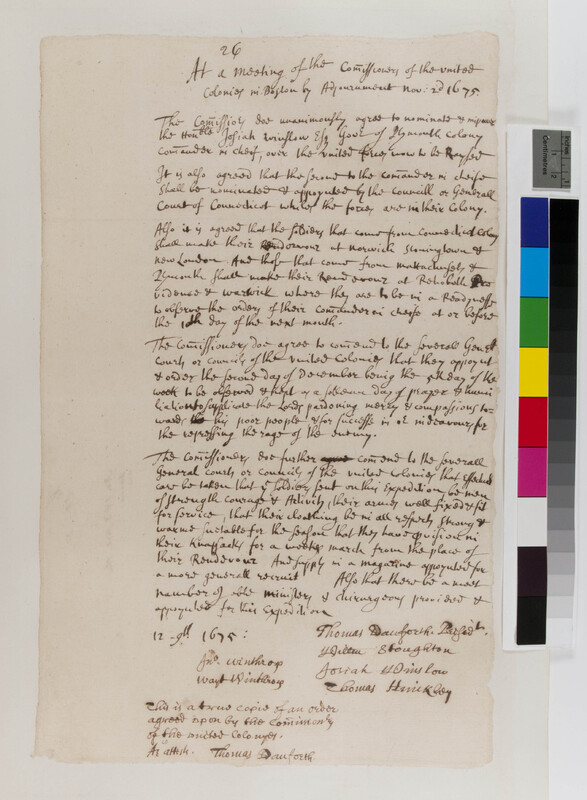 26
At a meeting of the Comissioners of the united
Colonies in Boston by Adjournment Nov: 2d 1675
The Comissiors doe unanimously agree to nominate & impower
the Honble Josiah Winslow Esq Govr of Plymouth Colony
Comander in cheif, over the united forces now to be Raysed
It is also agreed that the second to the comander in cheife
shall be nominated & appoynted by the councill or Generall
Court of Connecticot whiles the forces are in their Colony.
Also it is agreed that the soldiers that come from Connecticot Colony
shall make their Rendevour at Norwich Stoningtown &
new London And those that come from mattachusets &
Plymouth shall make their Rendevour at Rehoboth Pro
vidence & warwick where they are to be in a Readynesse
to observe the orders of their Comander in cheife at or before
the 10th day of the next month.
The Comissioners doe agree to comend to the severall Genrll
Courts or councils of the united colonies that they appoynt
& order the second day of December being the 5th day of the
week to be observed & kept as a solemn day of prayer & humi
liation to supplicate the Lords pardoning mercy & compassions to=
wards his poor people & for successe in or indeavours for
the repressing the rage of the enemy.
The Comissioners doe further comend to the severall
Generall Courts or Councils of the united Colonies that effectuall
care be taken that ye soldiers sent on this Expedition be men
of strength courage & Activity, their armes well fixed & fit
for service, that their cloathing be in all respects strong &
warme suetable for the season that they have provision in
their Knapsacks for a weekes march from the place of
their Rendevour And supply in a magazine appoynted for
a more generall recruit Also that there be a meet
number of able ministers & chirurgeons provided &
appoynted for this Expedition
12 - 9th 1675:
Thomas Danforth. Presidt.
Willm Stoughton
Jno. Winthrop
Josiah Winslow
Wayt Winthrop
Thomas Hinckley
This is a true copie of an order
agreed upon by the
of the united Colonyes.
As attests. Thomas Danforth.
Centimetres